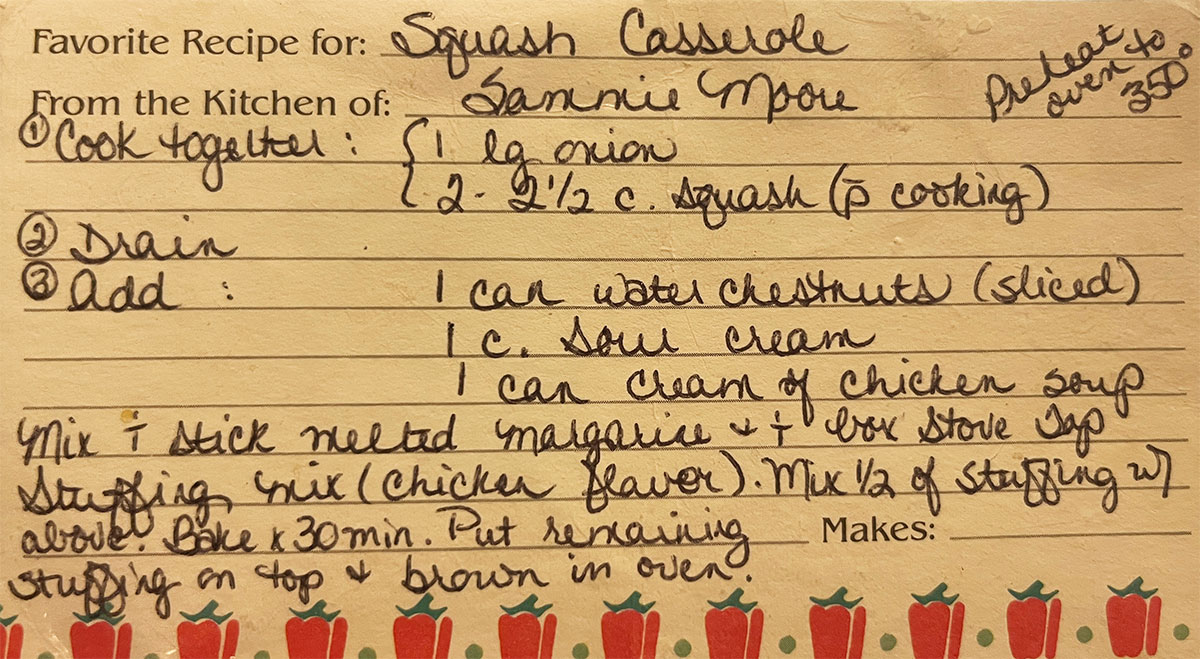 Favorite Recipe for: Squash Casserole
Preheat oven to 350°
From the Kitchen of: Sammie Moore
① Cook together: { 1 lg onion
2 - 2 1/2 c. squash (p̄ cooking)
② Drain
③ Add : 1 can water chestnuts (sliced)
1 c. sour cream
1 can cream of chicken soup
Mix ⸆ stick melted margarine & ⸆ box Stove Top
Stuffing mix (chicken flavor). Mix 1/2 of stuffing w/
above. Bake x 30 min. Put remaining Makes:
stuffing on top & brown in oven.